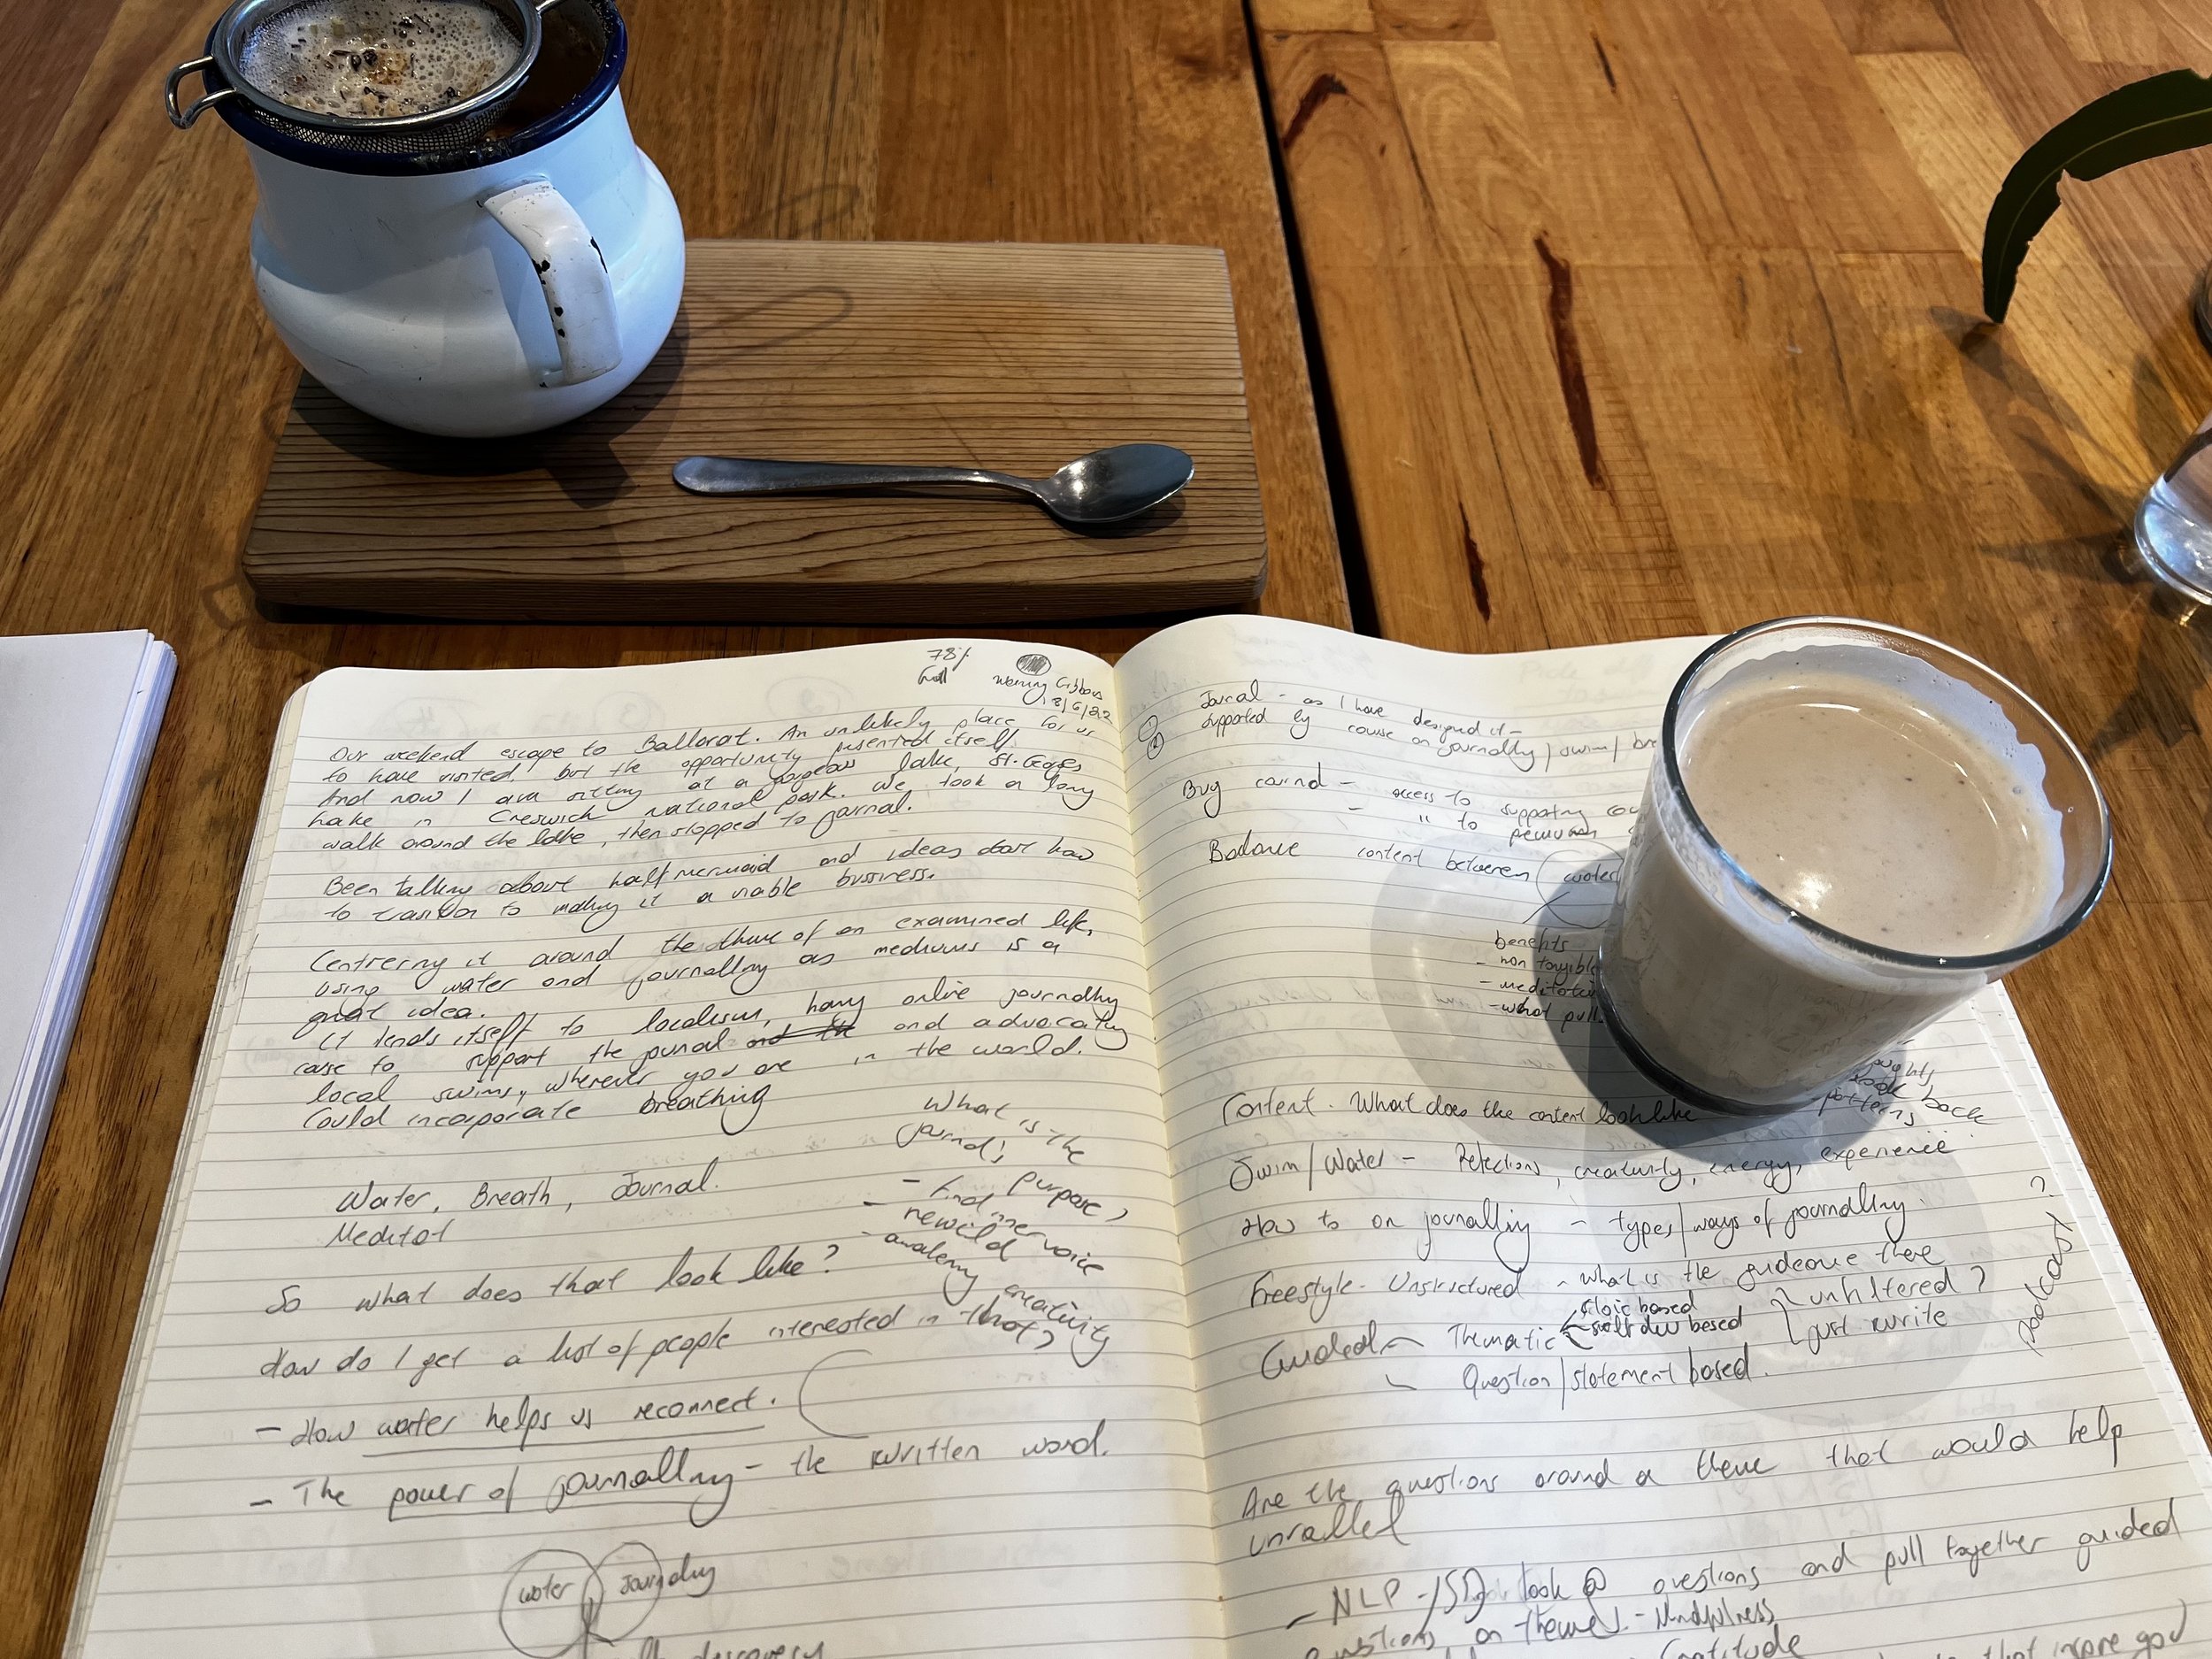 78%
Full
Waning Gibbous
18/6/22
Our weekend escape to Ballarat. An unlikely place for us
to have visited, but the opportunity presented itself.
And now I am sitting at a gorgeous lake, St. Georges
Lake in Creswick national park. We took a long
walk around the lake, then stopped to journal.
Been talking about half mermaid and ideas about how
to transition to making it a viable business.
Centreing it around the theme of an examined life,
using water and journalling as mediums is a
great idea.
It lends itself to localism, having online journalling
to support the journal and the and advocating
local swims, wherever you are in the world.
Could incorporate breathing
Water, Breath, Journal.
Meditat
What is the
journal's
purpose,
- find inner voice
- rewild
- awakening creativity
So what does that look like?
How do I get a list of people interested in that?
- How water helps us reconnect.
- The power of journalling - the written word.
water
Journaling
discovery
① Journal - as I have designed it -
② supported by course on journalling / swim /
Buy journal - access to supporting
- " to premium
Balance content between water
benefits
- non tangible
- meditation
- what pull
look back
patterns
Content. What does the content look like
Swim/Water - Reflections, creativity, energy, experience
How to on journalling - types/ways of journalling.
Freestyle - Unstructured - what is the guidance there ?
unfiltered ?
just write
podcast
Guided - Thematic
based
based
Question/statement based.
Are the questions around a theme that would help
unravel
- NLP - look @ questions and pull together guided
questions on themes. - Mindfulness
Gratitude
that inspire you